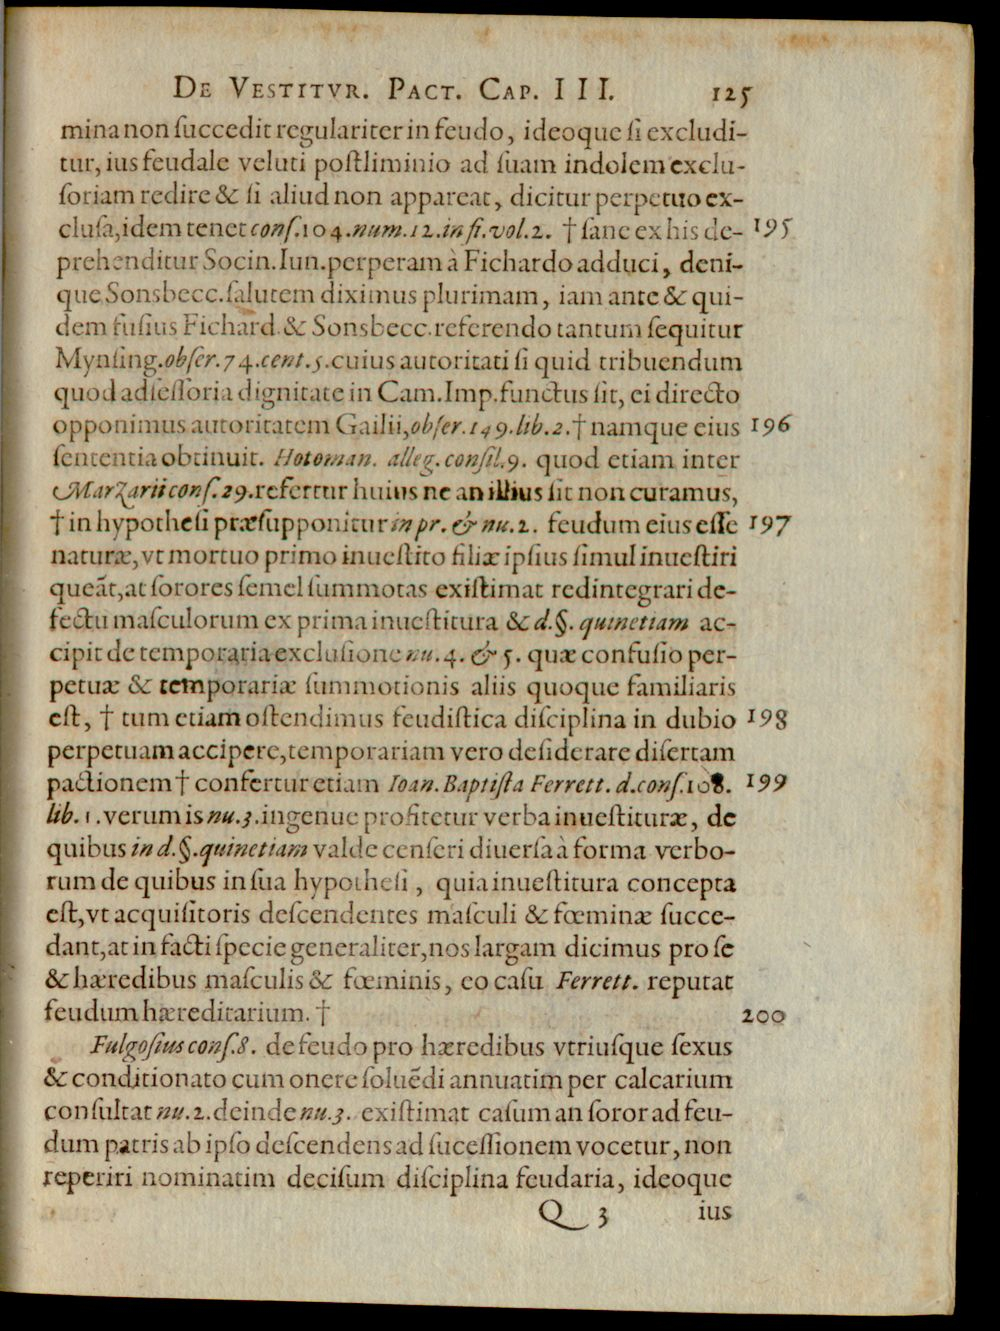 De Vestitvr. Pact. Cap. III. 125
mina non ſuccedit regulariter in feudo, ideoque ſi excludi-
tur, ius feudale veluti poſtliminio ad ſuam indolem exclu-
ſoriam redire & ſi aliud non appareat, dicitur perpetuo ex-
cluſa, idem tenet conſ. 104. num. 12. in fi. vol. 2. † ſane ex his de- 195
prehenditur Socin. Iun. perperam à Fichardo adduci, deni-
que Sonsbecc. ſalutem diximus plurimam, iam ante & qui-
dem fuſius Fichard. & Sonsbecc. referendo tantum ſequitur
Mynſing. obſer. 74. cent. 5. cuius autoritati ſi quid tribuendum
quod adſeſſoria dignitate in Cam. Imp. functus ſit, ei directo
opponimus autoritatem Gailii, obſer. 149. lib. 2. † namque eius 196
ſententia obtinuit. Hotoman. alleg. conſil. 9. quod etiam inter
Marzarii conſ. 29. refertur huius ne an illius ſit non curamus,
† in hypotheſi præſupponitur in pr. & nu. 2. feudum eius eſſe 197
naturæ, vt mortuo primo inueſtito filiæ ipſius ſimul inueſtiri
queāt, at ſorores ſemel ſummotas exiſtimat redintegrari de-
fectu maſculorum ex prima inueſtitura & d. §. quinetiam ac-
cipit de temporaria excluſione nu. 4. & 5. quæ confuſio per-
petuæ & temporariæ ſummotionis aliis quoque familiaris
eſt, † tum etiam oſtendimus feudiſtica diſciplina in dubio 198
perpetuam accipere, temporariam vero deſiderare diſertam
pactionem † confertur etiam Ioan. Baptiſta Ferrett. d. conſ. 108. 199
lib. 1. verum is nu. 3. ingenue profitetur verba inueſtituræ, de
quibus in d. §. quinetiam valde cenſeri diuerſa à forma verbo-
rum de quibus in ſua hypotheſi, quia inueſtitura concepta
eſt, vt acquiſitoris deſcendentes maſculi & fœminæ ſucce-
dant, at in facti ſpecie generaliter, nos largam dicimus pro ſe
& hæredibus maſculis & fœminis, eo caſu Ferrett. reputat
feudum hæreditarium. † 200
Fulgoſius conſ. 8. de feudo pro hæredibus vtriuſque ſexus
& conditionato cum onere ſoluēdi annuatim per calcarium
conſultat nu. 2. deinde nu. 3. exiſtimat caſum an ſoror ad feu-
dum patris ab ipſo deſcendens ad suceſſionem vocetur, non
reperiri nominatim deciſum diſciplina feudaria, ideoque
Q 3 ius